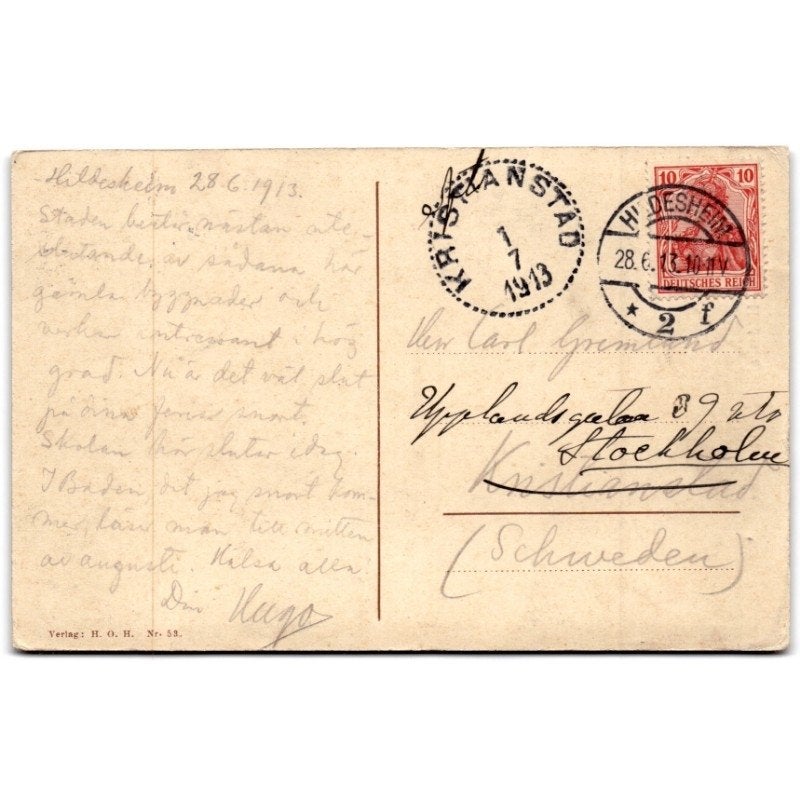 Hildesheim 28 6. 1913.
Staden består nästan ute-
slutande av sådana här
gamla byggnader och
verkar intressant i hög
grad. Nu är det väl slut
på dina ferier snart.
Skolan här slutar idag.
I Baden, dit jag snart kom-
mer, läser man till mitten
av augusti. Hälsa alla.
Din Hugo
Verlag: H. O. H. Nr. 53.
KRISTIANSTAD
1
7
1913
10 10
DEUTSCHES REICH
HILDESHEIM
28.6.13.10-11V.
* 2 f
Herr Carl
Upplandsgatan 39
Stockholm
Kristianstad
(Schweden)